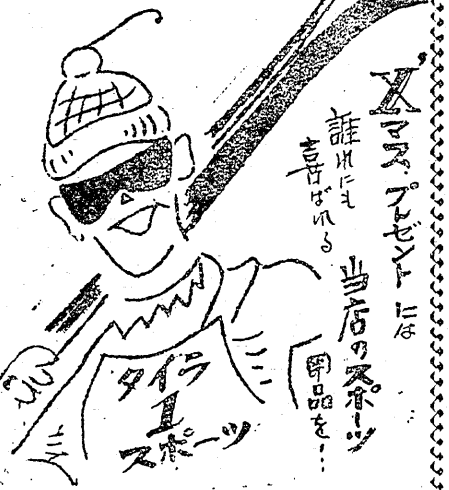 X'マス・プレゼントには
誰れにも
喜ばれる
当店のスポーツ
用品を!…
タイラ
スポーツ